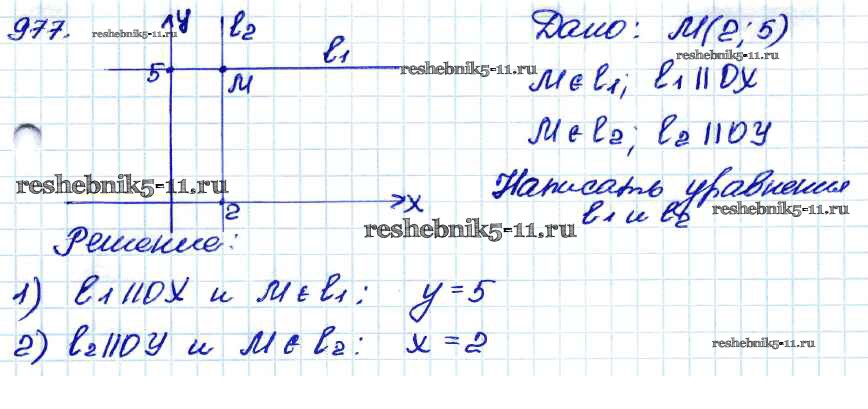 977.
reshebnik5-11.ru
y
l2
l1
5
M
reshebnik5-11.ru
Дано: M(2; 5)
reshebnik5-11.ru
M ∈ l1; l1 || OX
M ∈ l2; l2 || OY
reshebnik5-11.ru
2
x
Написать уравнения
l1 и l2
reshebnik5-11.ru
reshebnik5-11.ru
Решение:
1) l1 || OX и M ∈ l1: y = 5
2) l2 || OY и M ∈ l2: x = 2
reshebnik5-11.ru